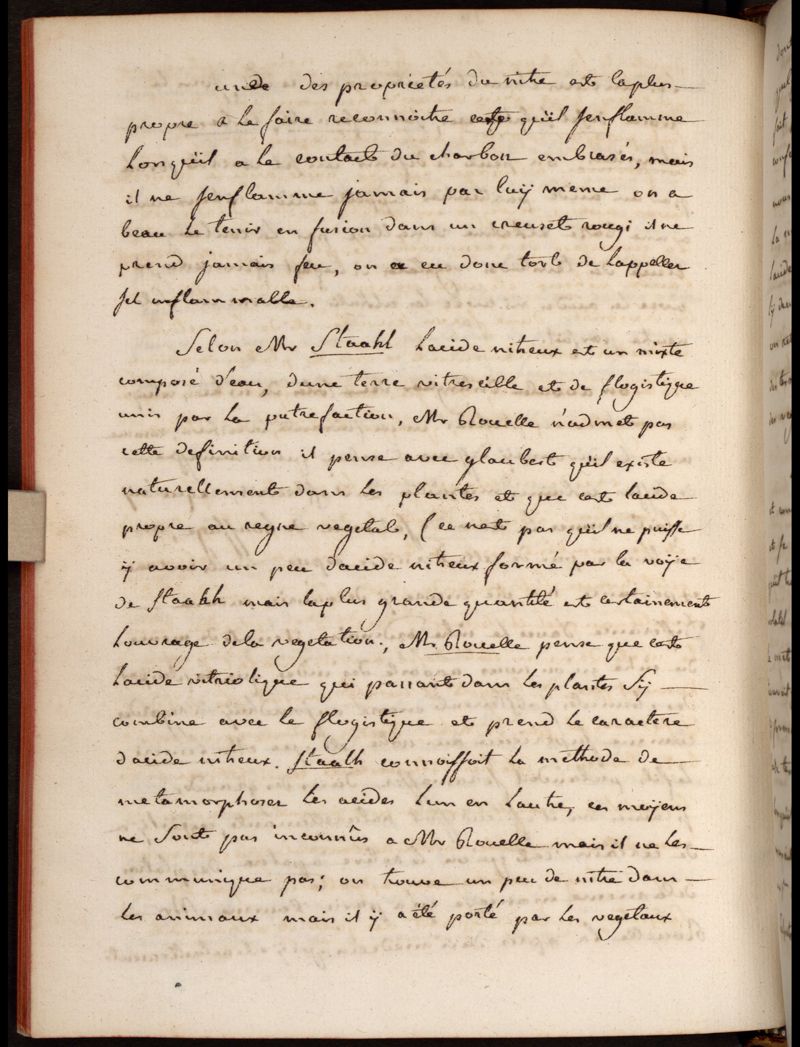 une des proprietés du nitre est laplus
propre a le faire reconnoitre cest qu'il senflamme
Lorsquil a le contact du charbon embrasés, mais
il ne senflamme jamais par luij meme on a
beau le tenir en fusion dans un creuset rougi il ne
prend jamais feu, on a eu donc tort de Lappeller
sel inflammable.
Selon Mr Staahl Lacide nitreux est un mixte
composé d'eau, dune terre vitrescille et de flogistique
unis par la putrefaction, Mr Rouelle n'admet pas
cette definition il pense avec glaubert qu'il existe
naturellement dans les plantes et que cest lacide
propre au regne vegetal, (ce nest pas qu'il ne puisse
ij avoir un peu dacide nitreux formé par la voije
de staahl mais laplus grande quantité est certainement
Louvrage dela vegetation:, Mr Rouelle pense que cest
Lacide vitriolique qui passant dans les plantes sij
combine avec le flogistique et prend le caractere
dacide nitreux. Staalh connoissoit la methode de
metamorphoser les acides lun en lautre, ces moijens
ne sont pas inconnûs a Mr Rouelle mais il ne les
communique pas; on trouve un peu de nitre dans
les animaux mais il ij a été porté par les vegetaux